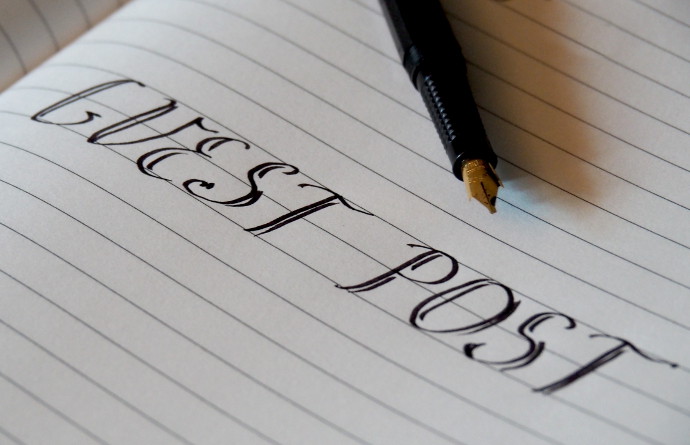 GUEST POST